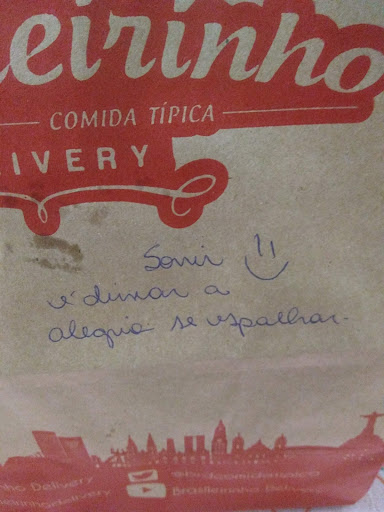 eirinho
COMIDA TÍPICA
IVERY
Sorrir
é deixar a
alegria se espalhar.
nho Delivery
Brasileirinho Delivery